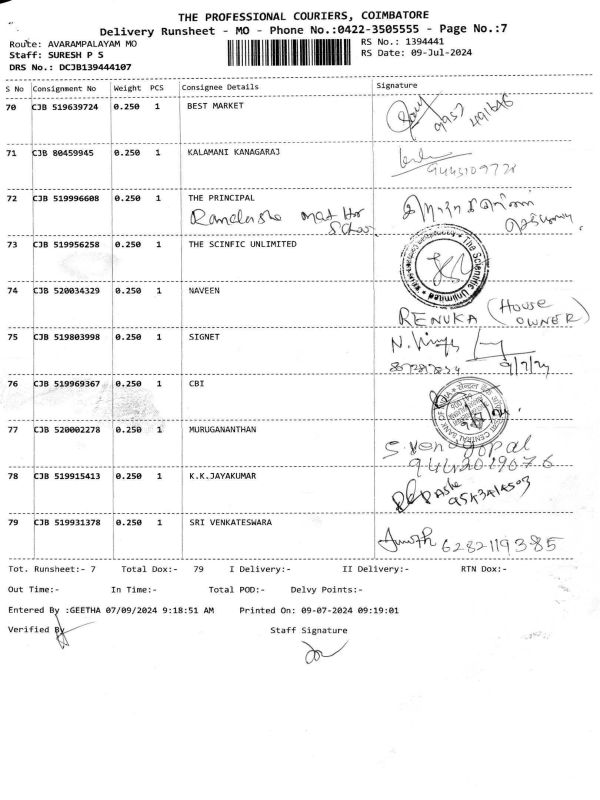 THE PROFESSIONAL COURIERS, COIMBATORE
Delivery Runsheet - MO - Phone No.:0422-3505555 - Page No.:7
Route: AVARAMPALAYAM MO RS No.: 1394441
Staff: SURESH P S RS Date: 09-Jul-2024
DRS No.: DCJB139444107
S No Consignment No Weight PCS Consignee Details Signature
70 CJB 519639724 0.250 1 BEST MARKET
9957 491646
71 CJB 80459945 0.250 1 KALAMANI KANAGARAJ
9443109778
72 CJB 519996608 0.250 1 THE PRINCIPAL
Mat Hr
73 CJB 519956258 0.250 1 THE SCINFIC UNLIMITED
The Scientific Unlimited
74 CJB 520034329 0.250 1 NAVEEN
RENUKA (HOUSE OWNER)
75 CJB 519803998 0.250 1 SIGNET
9/7/24
76 CJB 519969367 0.250 1 CBI
CENTRAL BANK OF INDIA
77 CJB 520002278 0.250 1 MURUGANANTHAN
S.Venugopal
9442019076
78 CJB 519915413 0.250 1 K.K.JAYAKUMAR
79 CJB 519931378 0.250 1 SRI VENKATESWARA
6282119385
Tot. Runsheet:- 7 Total Dox:- 79 I Delivery:- II Delivery:- RTN Dox:-
Out Time:- In Time:- Total POD:- Delvy Points:-
Entered By :GEETHA 07/09/2024 9:18:51 AM Printed On: 09-07-2024 09:19:01
Verified By Staff Signature